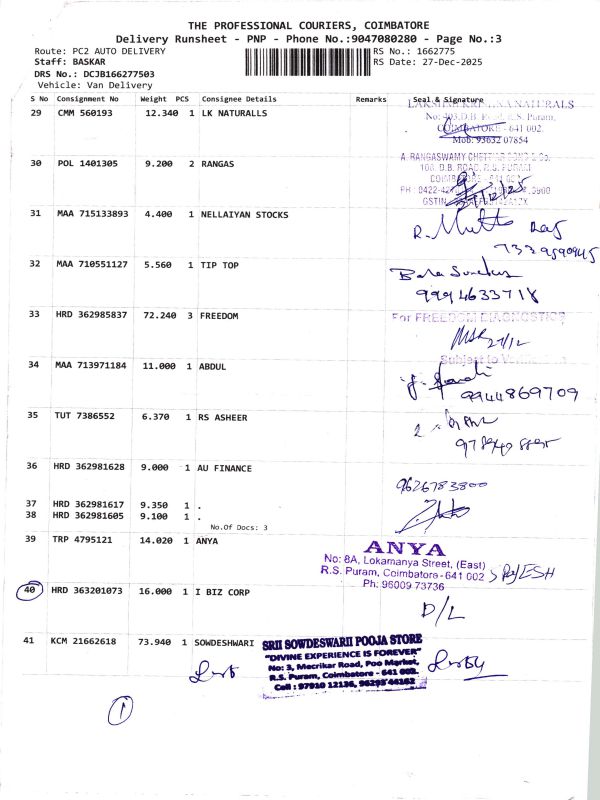 THE PROFESSIONAL COURIERS, COIMBATORE
Delivery Runsheet - PNP - Phone No.:9047080280 - Page No.:3
Route: PC2 AUTO DELIVERY RS No.: 1662775
Staff: BASKAR RS Date: 27-Dec-2025
DRS No.: DCJB166277503
Vehicle: Van Delivery
S No Consignment No Weight PCS Consignee Details Remarks Seal & Signature
29 CMM 560193 12.340 1 LK NATURALLS
R.S. Puram,
COIMBATORE - 641 002.
Mob: 93632 07854
30 POL 1401305 9.200 2 RANGAS
A. RANGASWAMY CHETTIAR
D.B. ROAD, R.S. PURAM
31 MAA 715133893 4.400 1 NELLAIYAN STOCKS
R. Muttu Raj
7339590945
32 MAA 710551127 5.560 1 TIP TOP
9994633718
33 HRD 362985837 72.240 3 FREEDOM
For FREEDOM DIAGNOSTICS
27/12
Subject to
34 MAA 713971184 11.000 1 ABDUL
9944869709
35 TUT 7386552 6.370 1 RS ASHEER
36 HRD 362981628 9.000 1 AU FINANCE
9626783800
37 HRD 362981617 9.350 1 .
38 HRD 362981605 9.100 1 .
No.Of Docs: 3
39 TRP 4795121 14.020 1 ANYA
ANYA
No: 8A, Lokamanya Street, (East)
R.S. Puram, Coimbatore - 641 002
Ph: 96009 73736
40 HRD 363201073 16.000 1 I BIZ CORP
D/L
41 KCM 21662618 73.940 1 SOWDESHWARI
SRII SOWDESWARII POOJA STORE
"DIVINE EXPERIENCE IS FOREVER"
No: 3, Mecrikar Road, Poo Market,
R.S. Puram, Coimbatore - 641 002.
Cell : 97910 12136, 96293 44162
1